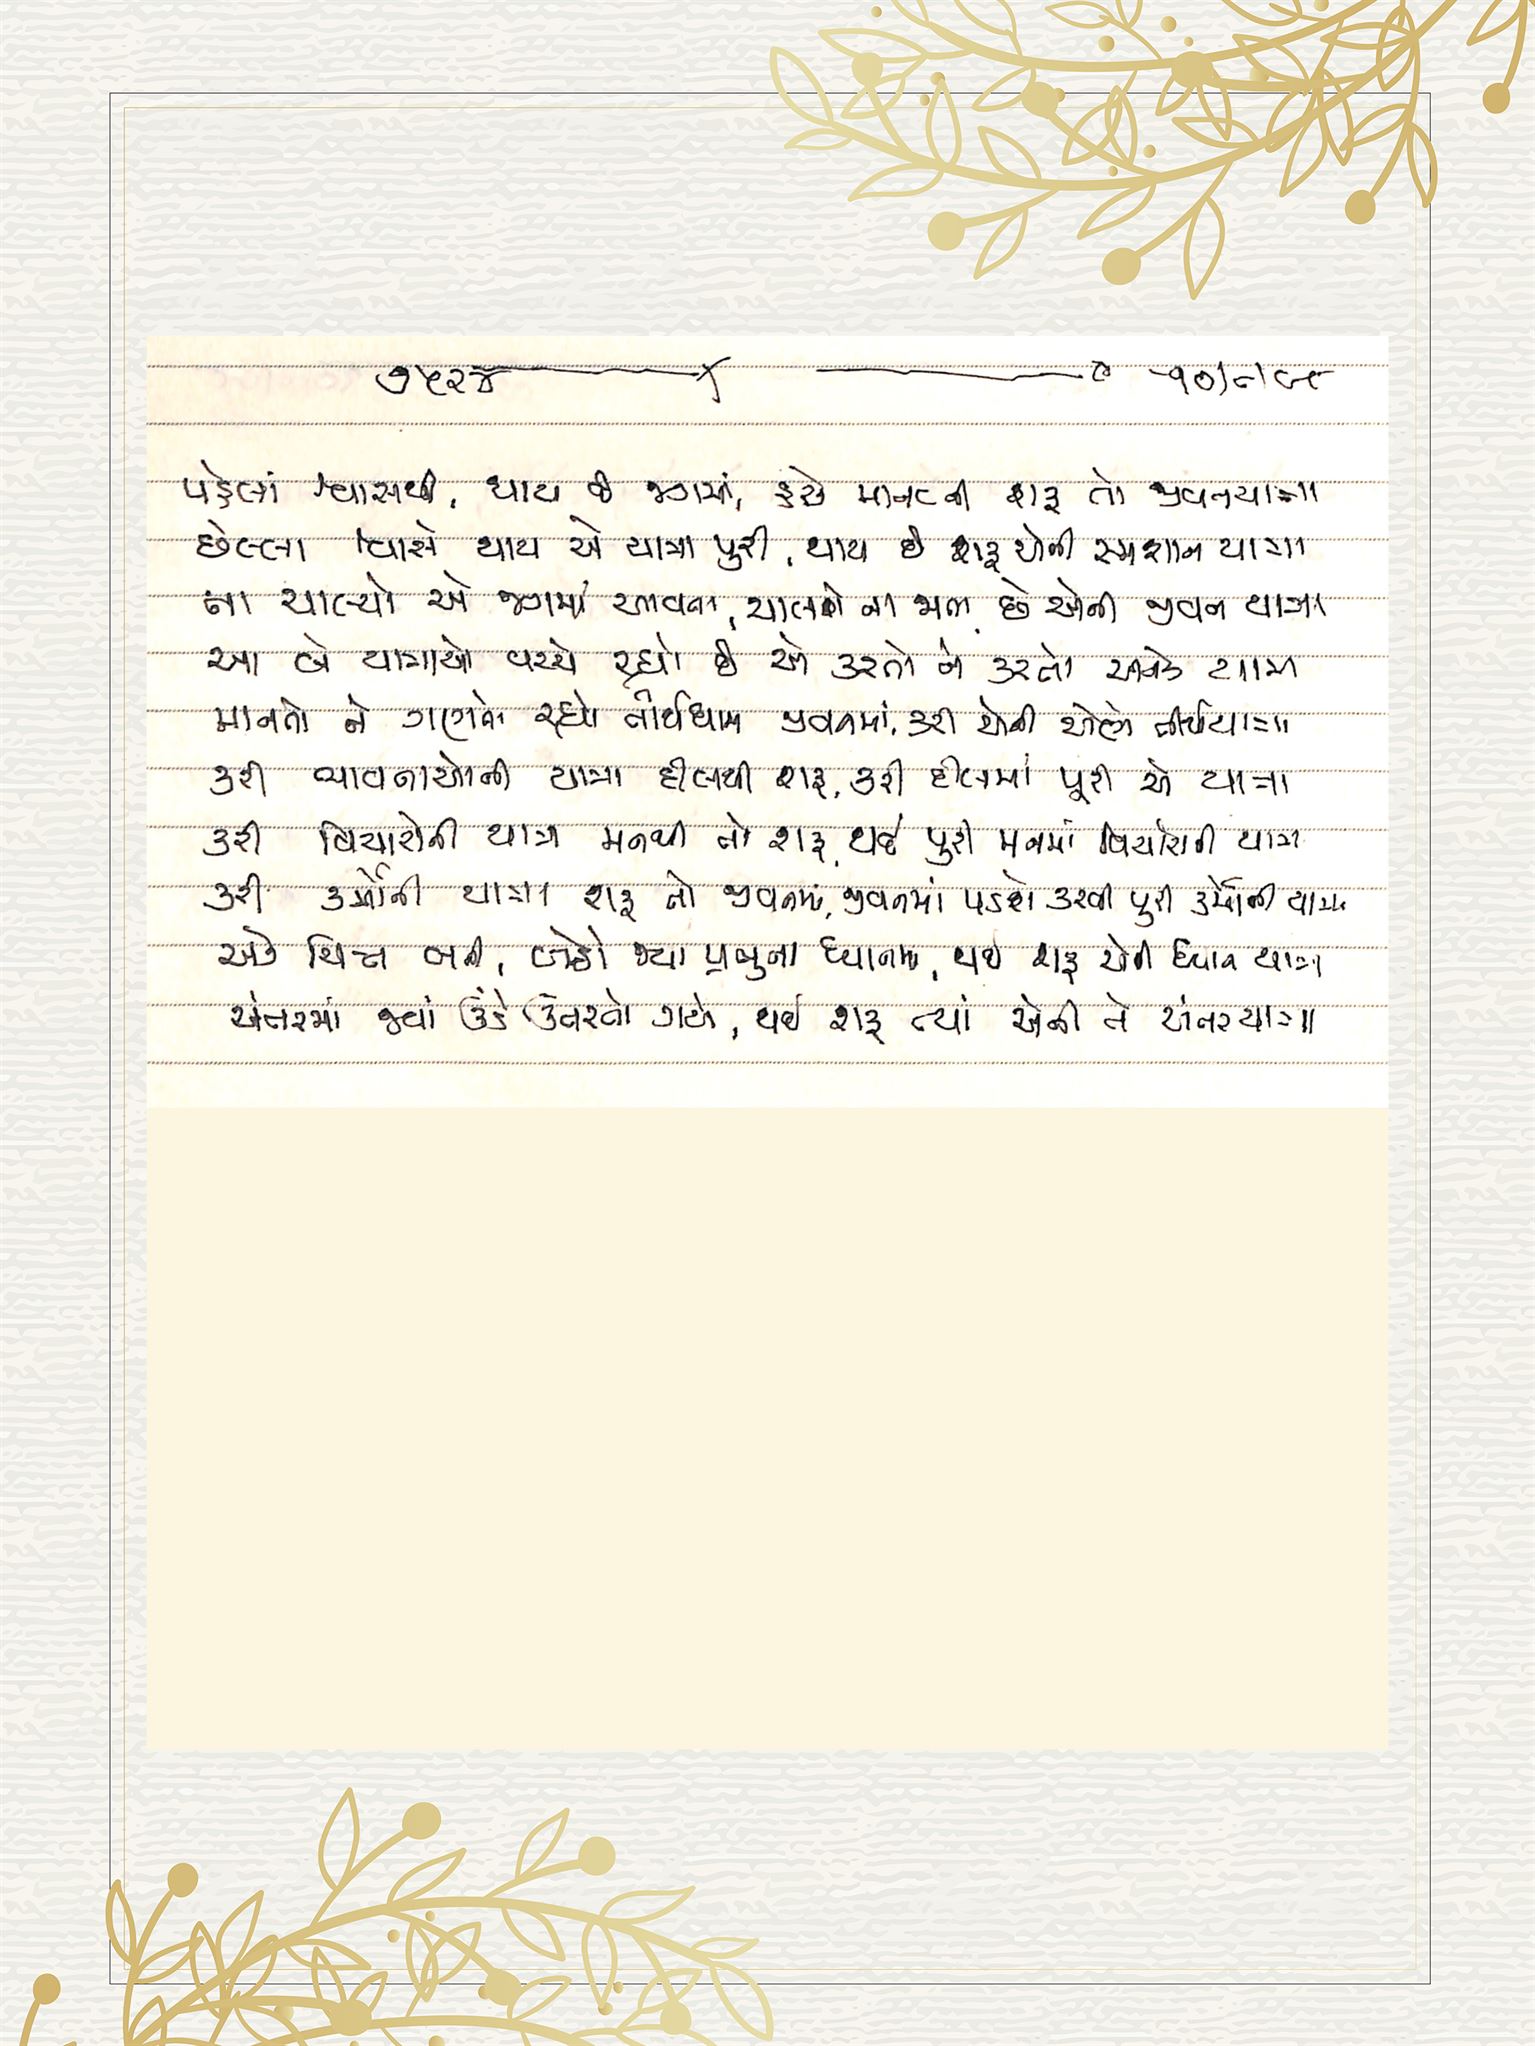 ૭૫૨૪
પહેલાં શ્વાસથી, થાય છે જગમાં, હરેક માનવની શરૂ તો જીવનયાત્રા
છેલ્લા શ્વાસે થાય એ યાત્રા પુરી, થાય છે શરૂ એની સ્મશાન યાત્રા
ના ચાલ્યો એ જગમાં આવતા, ચાલશે ના ભલે છે એની જીવન યાત્રા
આ બે યાત્રાઓ વચ્ચે રહ્યો છે એ કરતો ને કરતો અનેક યાત્રા
માનતો ને ગણતો રહ્યો તીર્થધામ જીવનમાં, કરી એની એણે તીર્થયાત્રા
કરી ભાવનાઓની યાત્રા દીલથી શરૂ, કરી દીલમાં પૂરી એ યાત્રા
કરી વિચારોની યાત્રા મનથી તો શરૂ, થઈ પુરી મનમાં વિચારોની યાત્રા
કરી કર્મોની યાત્રા શરૂ તો જીવનમાં, જીવનમાં પડશે કરવી પુરી કર્મોની યાત્રા
એક ચિત્ત બની, બેઠો જ્યાં પ્રભુના ધ્યાનમાં, થઈ શરૂ એની ધ્યાન યાત્રા
અંતરમાં જ્યાં ઊંડે ઉતરતો ગયો, થઈ શરૂ ત્યાં એની તે અંતરયાત્રા